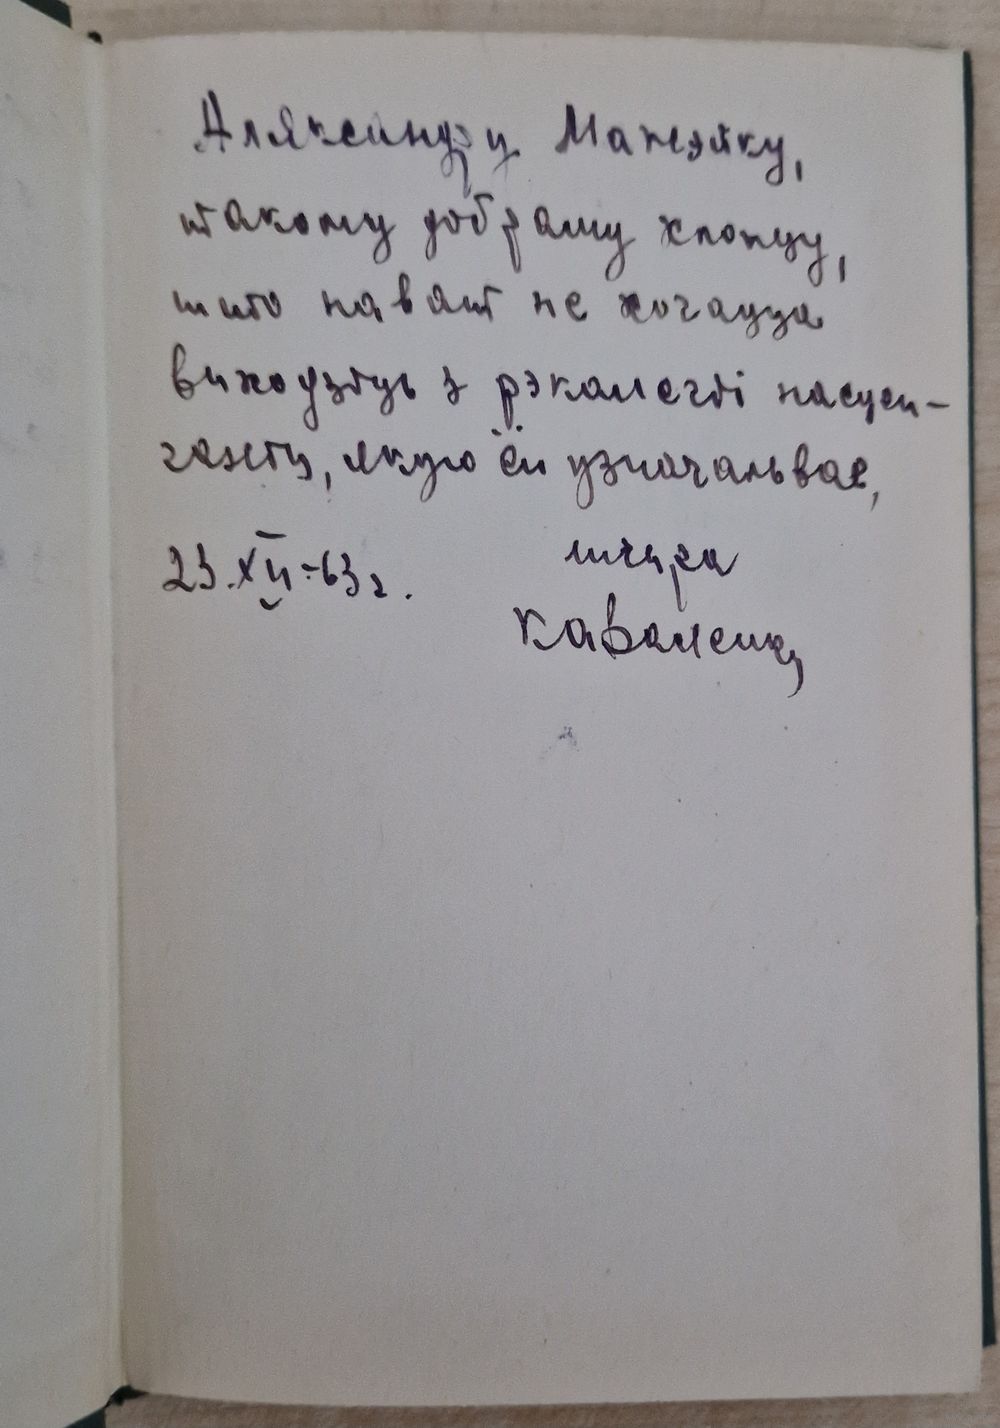 Аляксандру Мажэйку,
такому добраму хлопцу,
што нават не хочацца
выходзіць з рэкалегіі насцен-
газеты, якую ён узначальвае,
23.XII-63 г. шчыра
Каваленка